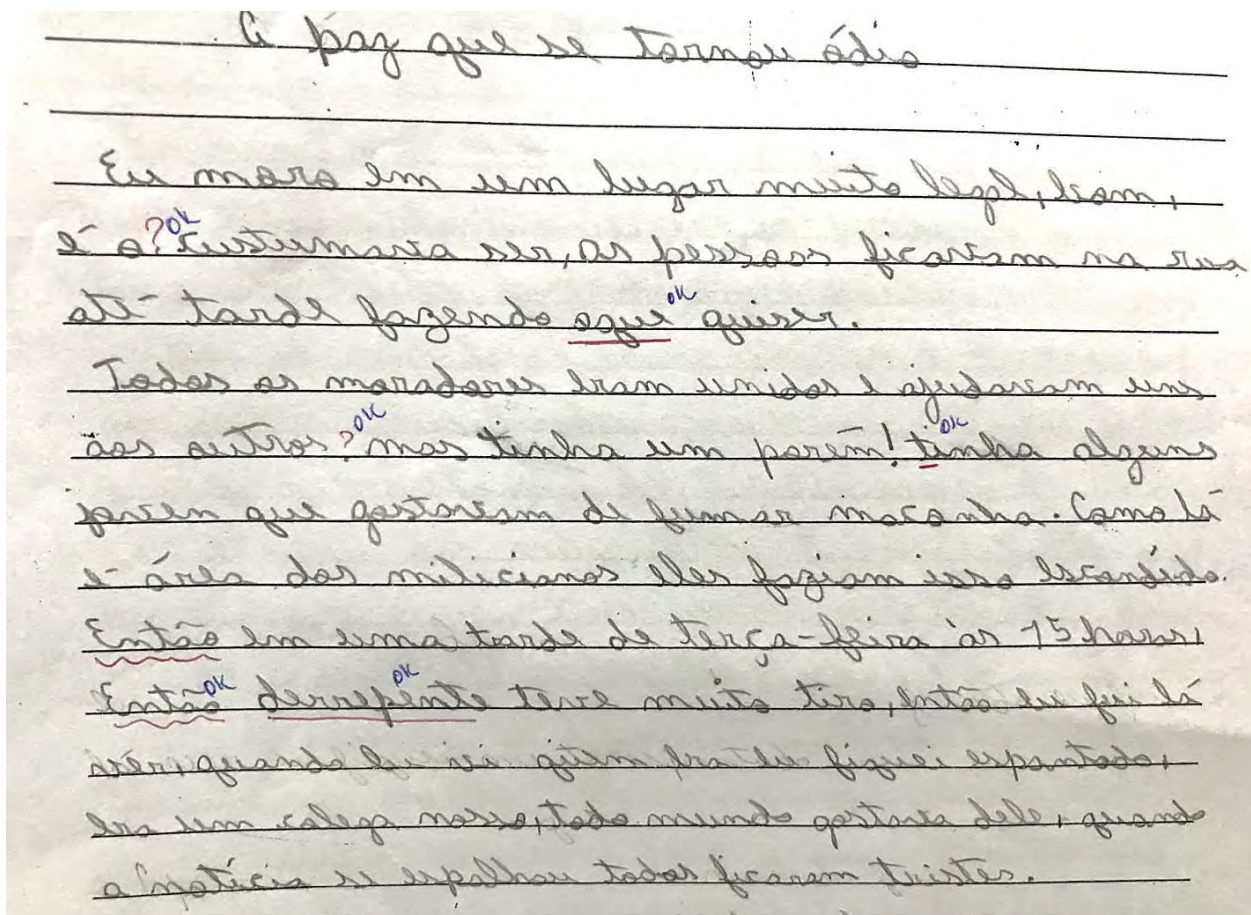 A paz que se tornou ódio
Eu moro em um lugar muito legal, bom,
é o ?OK custumava ser, as pessoas ficavam na rua
até tarde fazendo oque OK quiser.
Todos os moradores eram unidos e ajudavam uns
aos outros ?OK mas tinha um porém! OK tinha alguns
jovem que gostavam de fumar maconha. Como lá
é área dos milicianos eles faziam isso escondido.
Então em uma tarde de terça-feira às 15 horas,
Então OK derrepente OK teve muito tiro, então eu fui lá
vêr, quando eu vi quem era eu fiquei espantado,
era um colega nosso, todo mundo gostava dele, quando
a notícia se espalhou todos ficaram tristes.